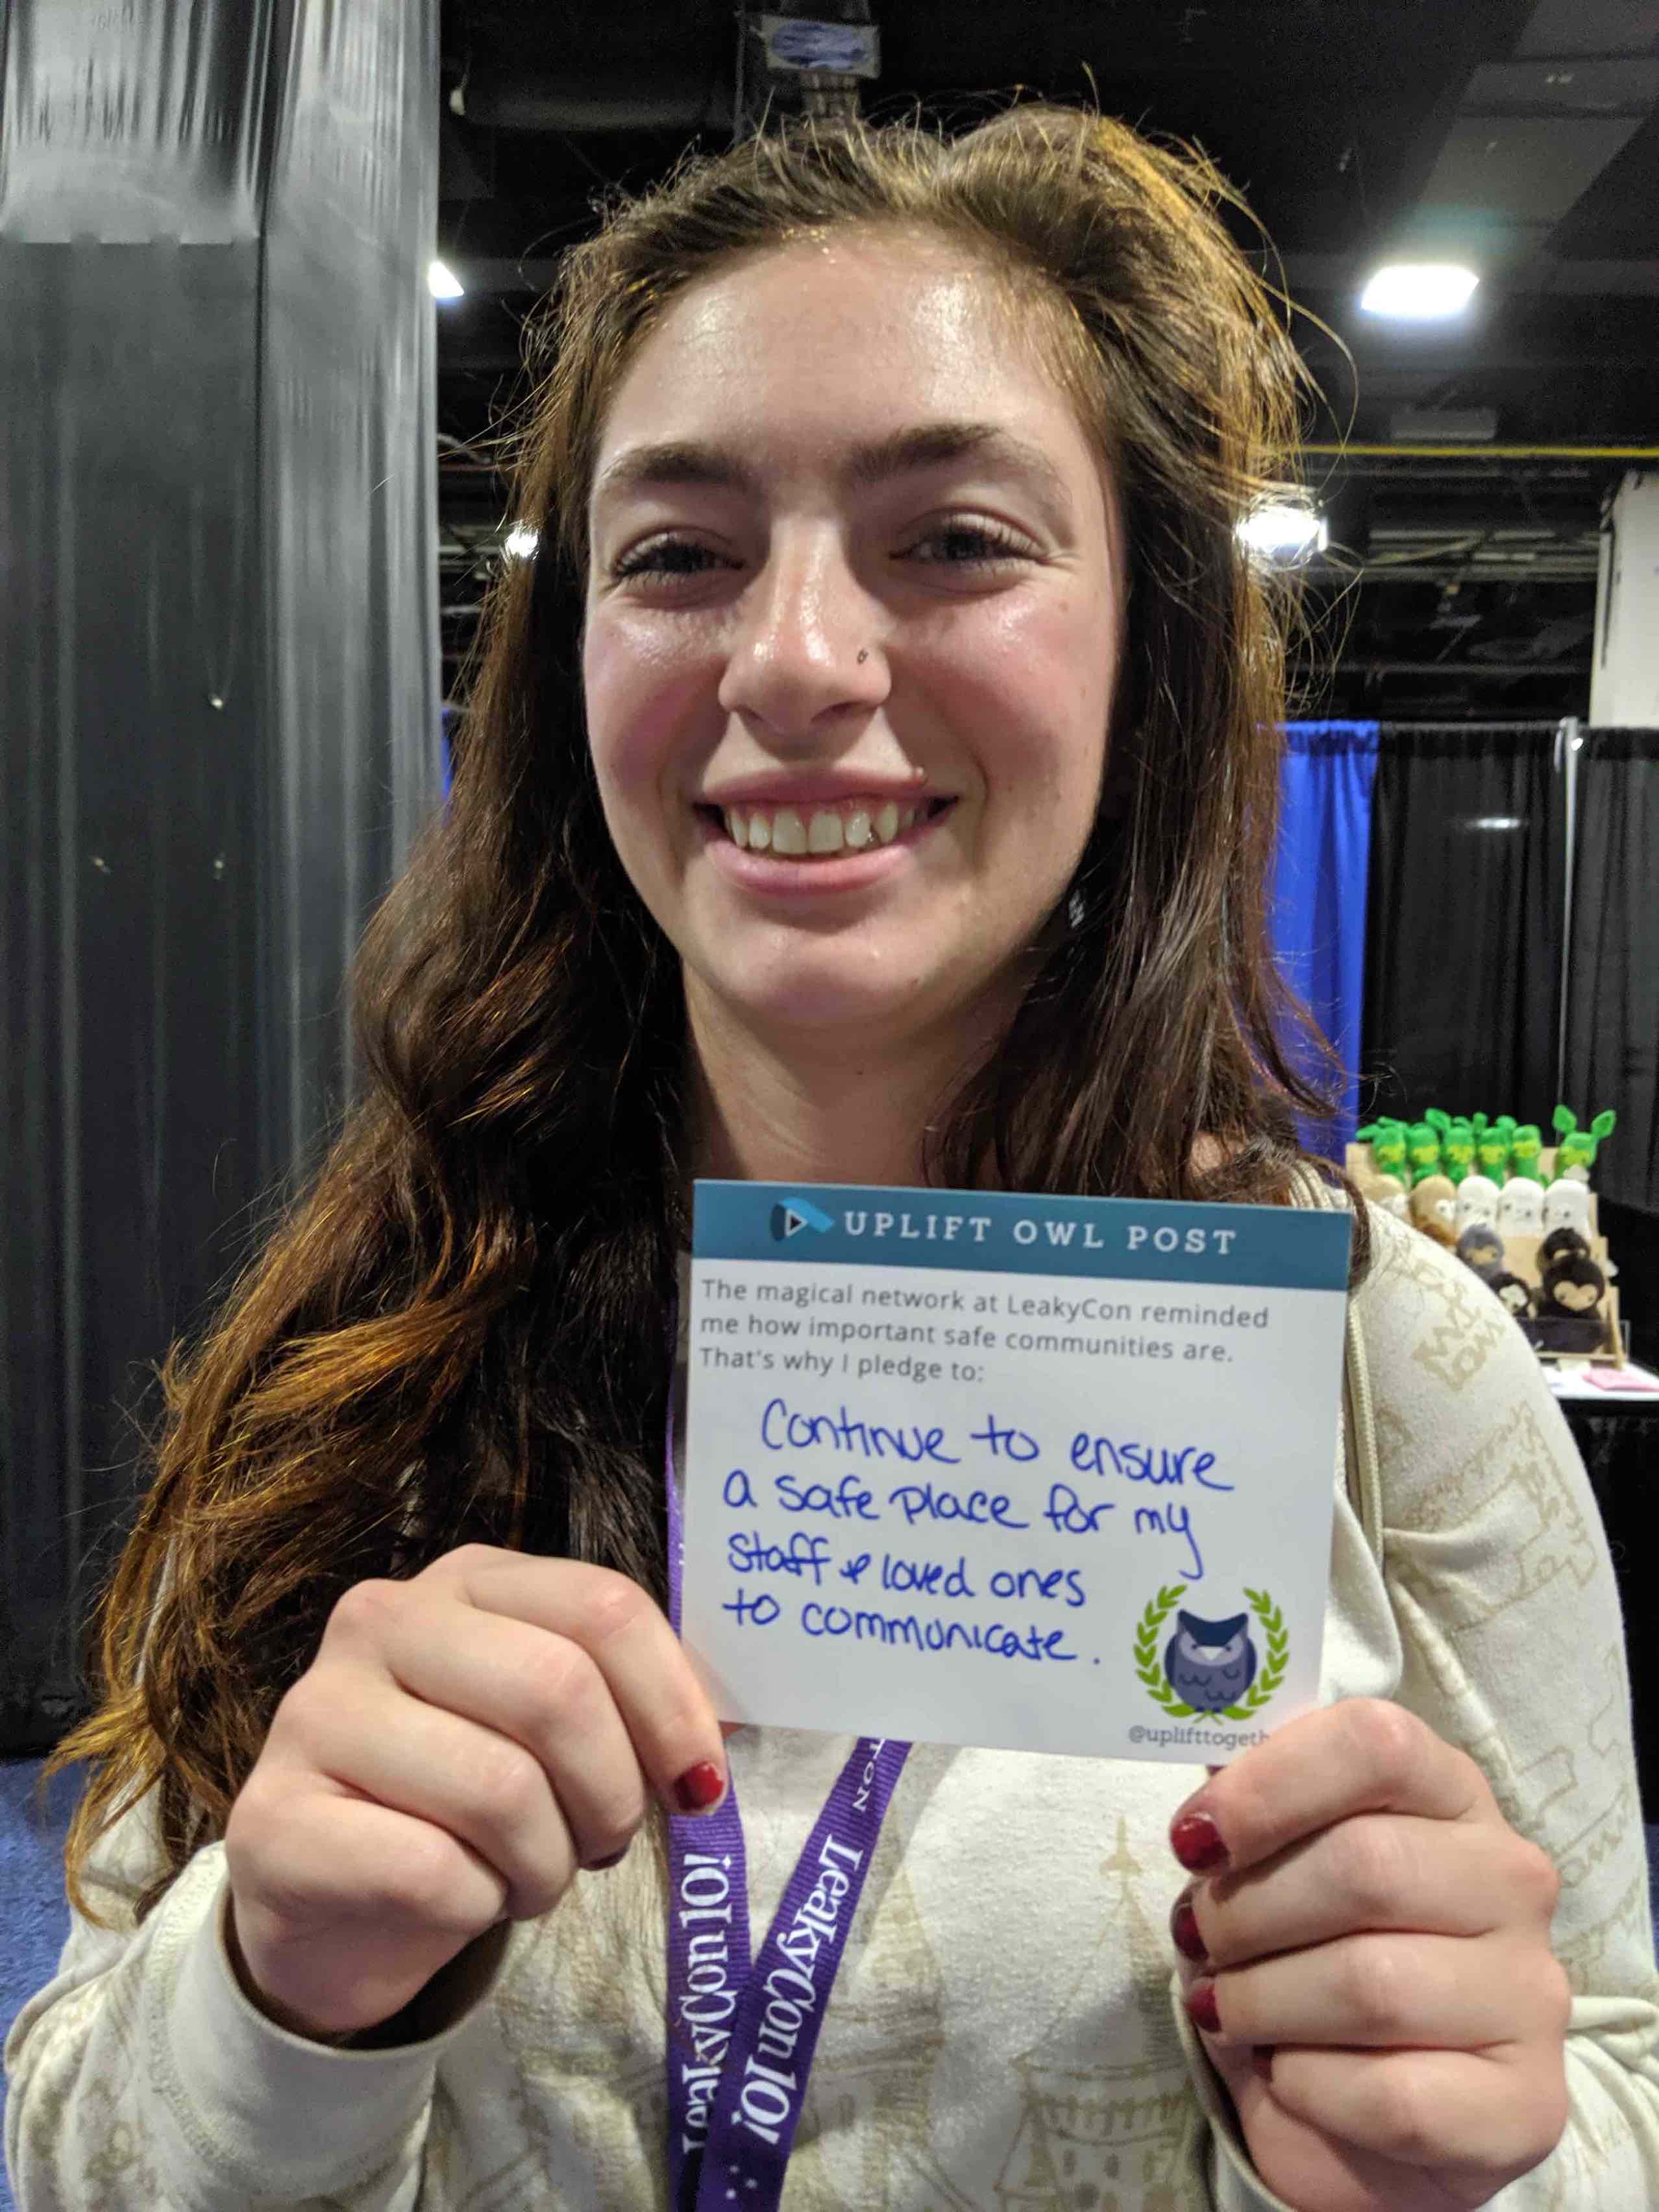 UPLIFT OWL POST
The magical network at LeakyCon reminded
me how important safe communities are.
That's why I pledge to:
Continue to ensure
a safe place for my
staff & loved ones
to communicate.
@uplifttogeth
LeakyCon10!
TON LeakyCon10!